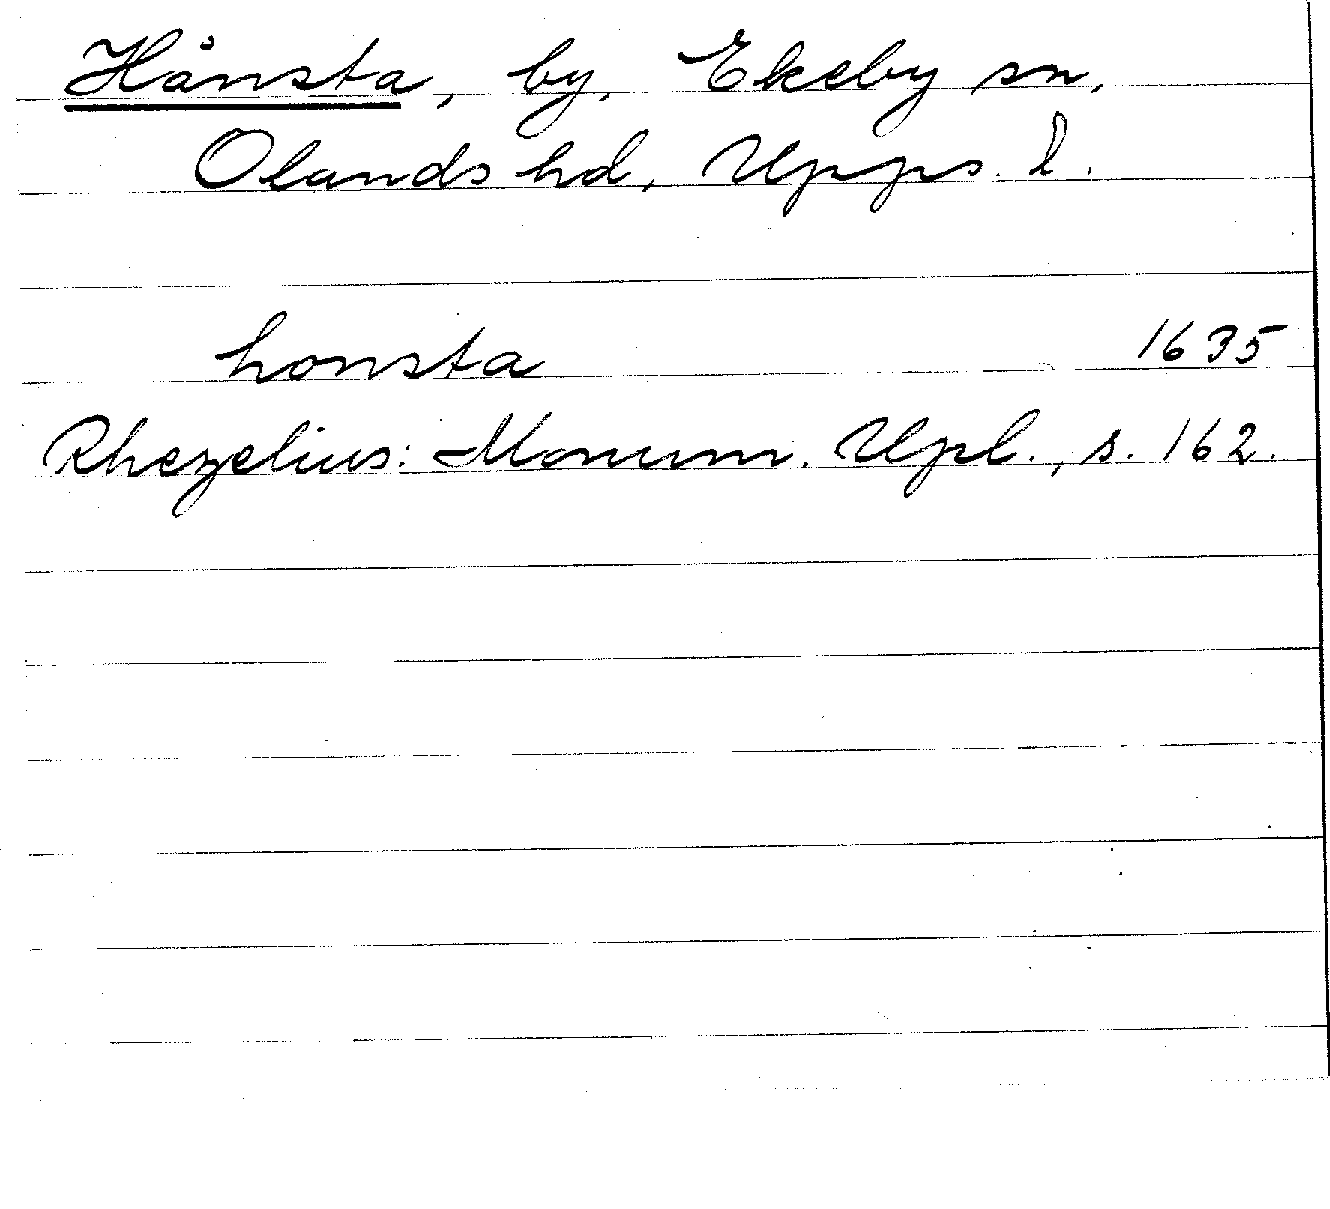 Hånsta, by, Ekeby sn,
Olands hd, Upps. l.
honsta 1635
Rhezelius: Monum. Upl., s. 162.